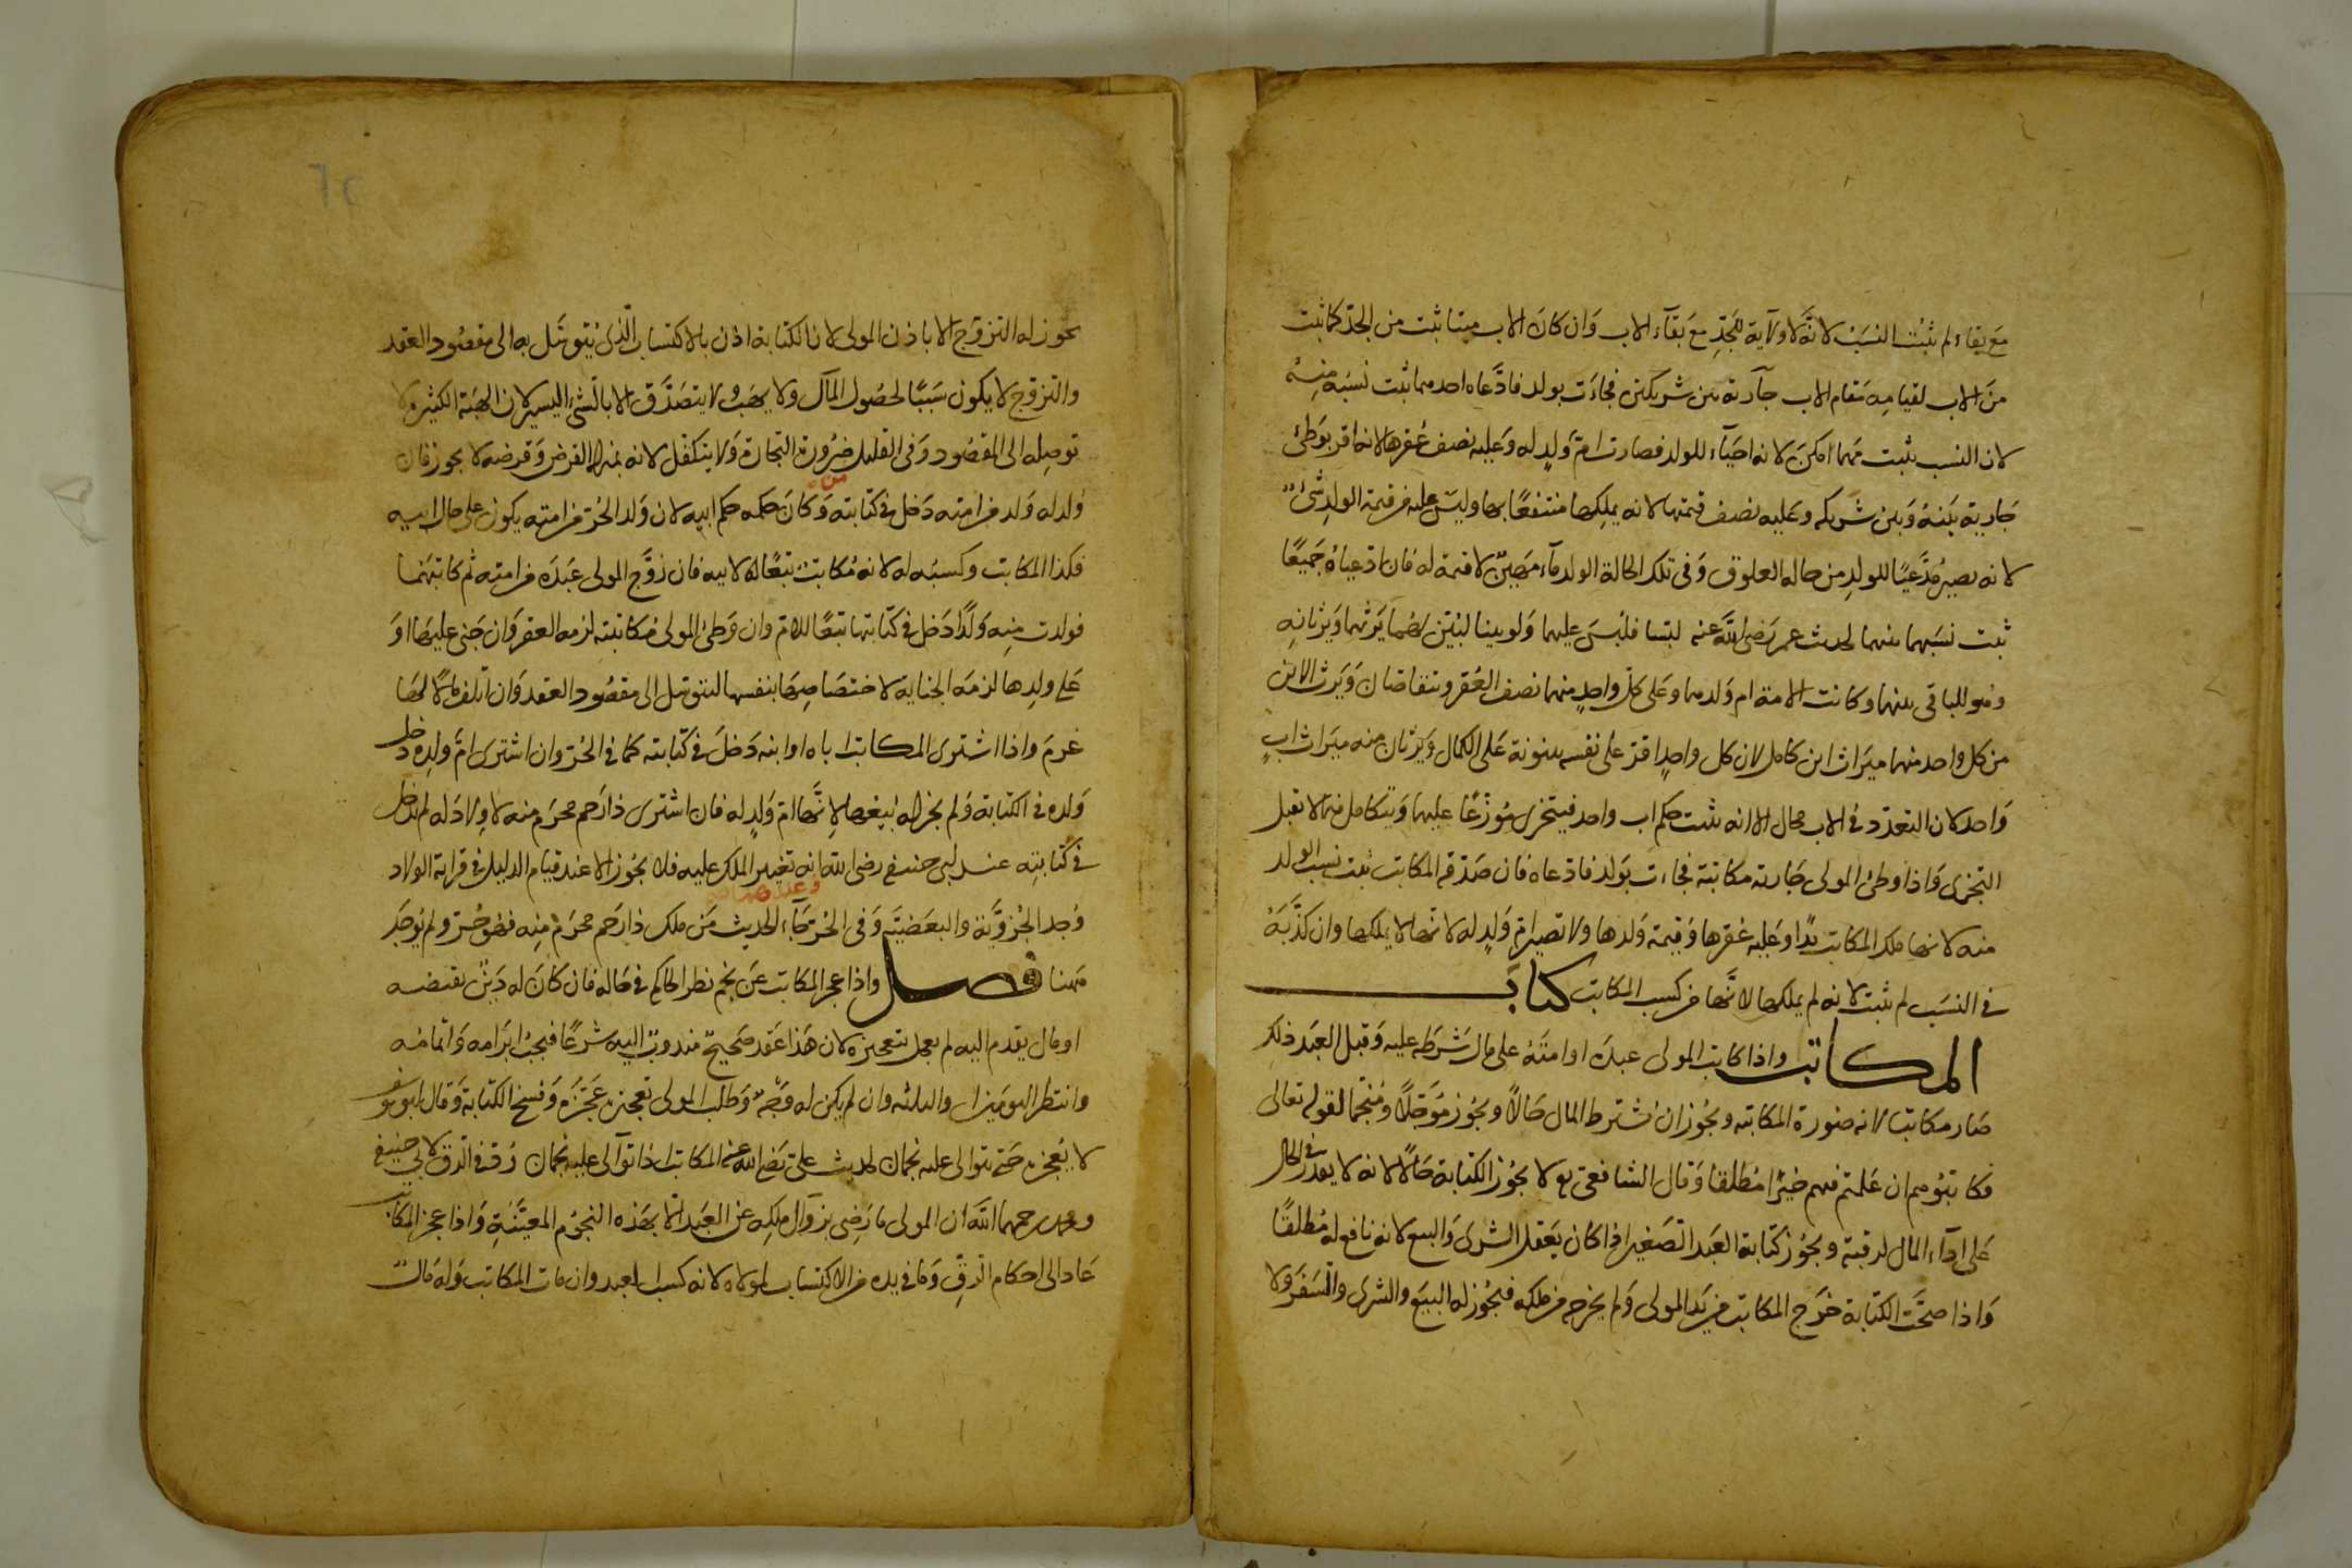 مع بقاءه لم يثبت النسب لانه لا ولاية للجد مع بقاء الاب وان كان الاب ميتا يثبت من الجد كما يثبت
من الاب لقيامه مقام الاب جارية بين شريكين فجاءت بولد فادعاه احدهما ثبت نسبه منه
لان النسب يثبت مهما امكن لانه احياء للولد فصارت ام ولد له وعليه نصف عقرها لانه اقر بوطئ
جارية بينه وبين شريكه وعليه نصف قيمتها لانه يملكها منتفعا بها وليس عليه من قيمة الولد شئ
لانه يصير مدعيا للولد من حاله العلوق وفي تلك الحالة الولد ماء مهين لا قيمة له فان ادعياه جميعا
ثبت نسبهما منهما لحديث عمر رضي الله عنه لبسا فلبس عليهما ولو بينا لبين لهما يرثهما ويرثانه
وهو للباقي منهما وكانت الامة ام ولدهما وعلى كل واحد منهما نصف العقر وتتقاصان ويرث الابن
من كل واحد منهما ميراث ابن كامل لان كل واحد اقر على نفسه ببنوته على الكمال ويرثان منه ميراث اب
واحد لان التعدد في الاب محال الا انه يثبت حكم اب واحد فيتجزى موزعا عليهما ويتكامل فيما لا تقبل
التجزى واذا وطئ المولى جارية مكاتبه فجاءت بولد فادعاه فان صدقه المكاتب ثبت نسب الولد
منه لانها ملك المكاتب يدا وعليه عقرها وقيمة ولدها ولا تصير ام ولد له لانها لا يملكها وان كذبه
في النسب لم يثبت لانه لم يملكها لانها من كسب المكاتب كتاب
المكاتب واذا كاتب المولى عبده او امته على مال شرطه عليه وقبل العبد ذلك
صار مكاتبا لانه صورة المكاتبه ويجوز ان يشترط المال حالا ويجوز مؤجلا ومنجما لقوله تعالى
فكاتبوهم ان علمتم فيهم خيرا مطلقا وقال الشافعي لا يجوز الكتابة حالا لانه لا يقدر في الحال
على اداء المال لرقبته ويجوز كتابة العبد الصغير اذا كان يعقل الشرى والبيع لانه نافع له مطلقا
واذا صحت الكتابة خرج المكاتب من يد المولى ولم يخرج من ملكه فيجوز له البيع والشرى والسفر ولا
يجوز له التزوج الا باذن المولى لان الكتابة اذن بالاكتساب الذي يتوسل به الى مقصود العقد
والتزوج لا يكون سببا لحصول المال ولا يهب ولا يتصدق الا بالشئ اليسير لان الهبة الكثيرة لا
توصله الى المقصود وفي القليل ضرورة التجارة ولا يتكفل لانه بمنزلة القرض وقرضه لا يجوز فان
ولد له ولد من امته دخل في كتابته وكان حكمه حكم ابيه لان ولد الحر من امته يكون على حال ابيه
فكذا المكاتب وكسبه له لانه مكاتب تبعا لابيه فان زوج المولى عبده من امته ثم كاتبهما
فولدت منه ولدا دخل في كتابتها تبعا للام وان وطئ المولى مكاتبته لزمه العقر وان جنى عليها او
على ولدها لزمه الجناية لاختصاصها بنفسها لتتوسل الى مقصود العقد وان اتلف مالا لها
غرم واذا اشترى المكاتب اباه او ابنه دخل في كتابته كما في الحر وان اشترى ام ولده دخل
ولده في الكتابة ولم يجز له بيعها لانها ام ولد له فان اشترى ذا رحم محرم منه لا ولاد له لم يدخل
في كتابته عند ابي حنيفه رضي الله انه تغيير الملك عليه فلا يجوز الا عند قيام الدليل في قرابة الولاد
وجد الجزوية والبعضية وفي الحر جاء الحديث من ملك ذا رحم محرم منه فهو حر ولم يوجد
ههنا فصل واذا عجز المكاتب عن نجم نظر الحاكم في حاله فان كان له دين يقتضيه
او مال يقدم اليه لم يعجل بتعجيزه لان هذا عقد صحيح مندوب اليه شرعا فيجب ابرامه واتمامه
وانتظر اليومين او الثلثه وان لم يكن له وجه وطلب المولى تعجيزه عجزه وفسخ الكتابة وقال ابو يوسف
لا يعجزه حتى يتوالى عليه نجمان لحديث علي رضي الله عنه المكاتب اذا توالى عليه نجمان رد في الرق لابي حنيفه
ومحمد رحمهما الله ان المولى ما رضي بزوال ملكه عن العبد الا بهذه النجوم المعينة واذا عجز المكاتب
عاد الى احكام الرق وما في يده من الاكتساب لمولاه لانه كسب العبد وان مات المكاتب وله مال